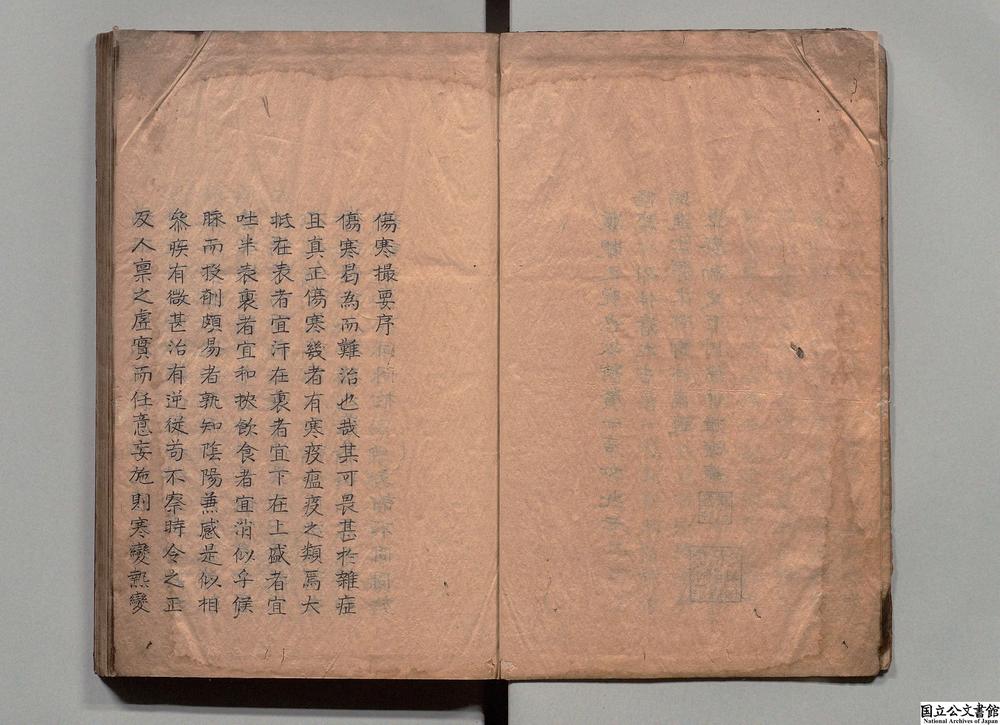 傷寒撮要序
傷寒曷為而難治也哉其可畏甚於雜症
且真正傷寒幾者有寒疫瘟疫之類焉大
抵在表者宜汗在裏者宜下在上盛者宜
吐半表裏者宜和挾飲食者宜消似乎候
脉而投劑頗易者孰知陰陽兼感是似相
參疾有微甚治有逆從苟不察時令之正
反人稟之虛實而任意妄施則寒變熱變
国立公文書館
National Archives of Japan